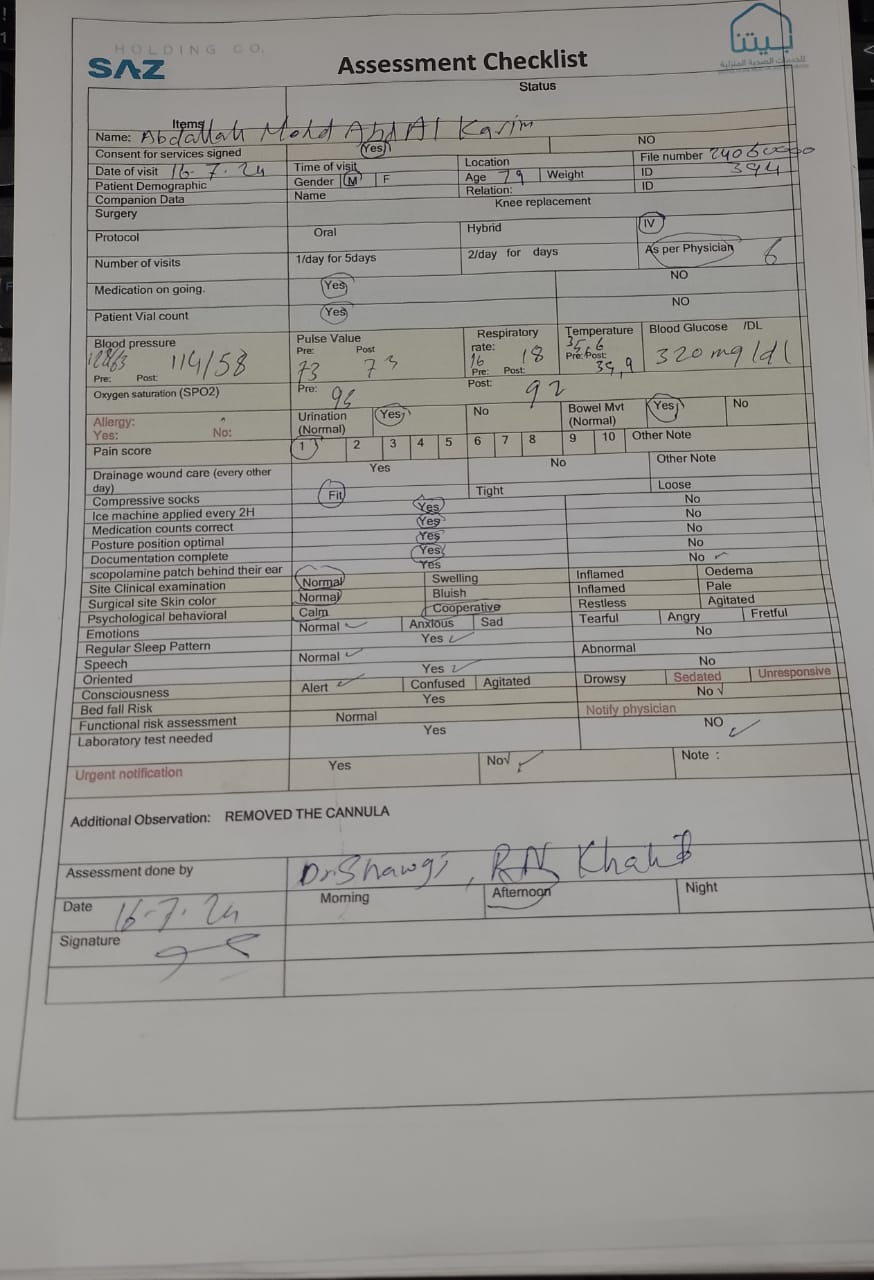 HOLDING CO.
SAZ
Assessment Checklist
بيتنا
للخدمات الصحية المنزلية
Items Status
Name: Abdallah Mohd Abd Al Karim
Consent for services signed Yes NO
Date of visit 16-7-24 Time of visit Location File number
Patient Demographic Gender M F Age 79 Weight ID 394
Companion Data Name Relation: ID
Surgery Knee replacement
Protocol Oral Hybrid IV
Number of visits 1/day for 5days 2/day for days As per Physician 6
Medication on going. Yes NO
Patient Vial count Yes NO
Blood pressure Pulse Value Respiratory rate: Temperature Blood Glucose /DL
Pre: Post: 114/58 Pre: 73 Post 73 Pre: 16 Post: 18 Pre: 35.6 Post: 320 mg/dl
Oxygen saturation (SPO2) Pre: Post: 92
Allergy: Yes: No: Urination (Normal) Yes No Bowel Mvt (Normal) Yes No
Pain score 1 2 3 4 5 6 7 8 9 10 Other Note
Drainage wound care (every other day) Yes No Other Note
Compressive socks Fit Tight Loose
Ice machine applied every 2H Yes No
Medication counts correct Yes No
Posture position optimal Yes No
Documentation complete Yes No
scopolamine patch behind their ear Yes No
Site Clinical examination Normal Swelling Inflamed Oedema
Surgical site Skin color Normal Bluish Inflamed Pale
Psychological behavioral Calm Cooperative Restless Agitated
Emotions Normal Anxious Sad Tearful Angry Fretful
Regular Sleep Pattern Yes No
Speech Normal Abnormal
Oriented Yes No
Consciousness Alert Confused Agitated Drowsy Sedated Unresponsive
Bed fall Risk Yes No √
Functional risk assessment Normal Notify physician
Laboratory test needed Yes NO
Urgent notification Yes No√ Note :
Additional Observation: REMOVED THE CANNULA
Assessment done by Dr Shawgi, RN Khalid
Date 16-7-24 Morning Afternoon Night
Signature